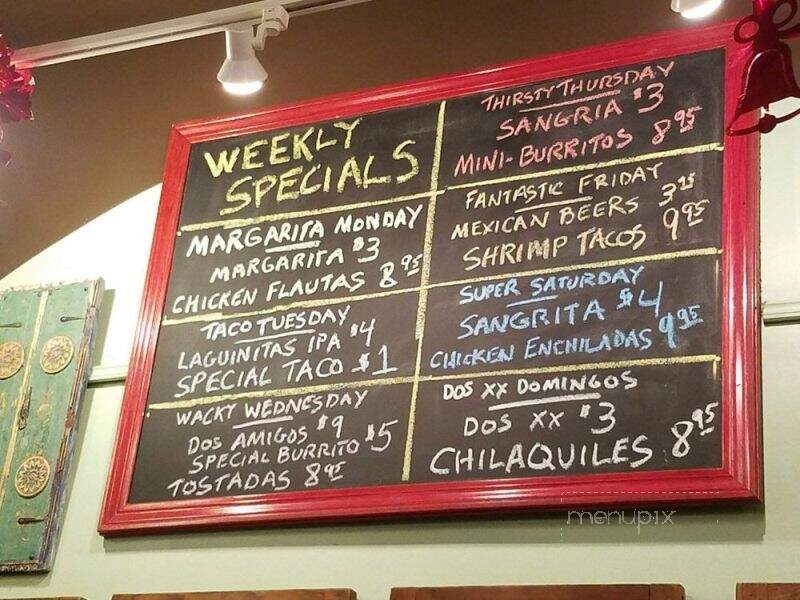 WEEKLY
SPECIALS
MARGARITA MONDAY
MARGARITA $3
CHICKEN FLAUTAS 8.95
TACO TUESDAY
LAGUINITAS IPA $4
SPECIAL TACO $1
WACKY WEDNESDAY
DOS AMIGOS $9
SPECIAL BURRITO $5
TOSTADAS 8.95
THIRSTY THURSDAY
SANGRIA $3
MINI-BURRITOS 8.95
FANTASTIC FRIDAY
MEXICAN BEERS 3.25
SHRIMP TACOS 9.95
SUPER SATURDAY
SANGRITA $4
CHICKEN ENCHILADAS 9.95
DOS XX DOMINGOS
DOS XX $3
CHILAQUILES 8.95
menupix